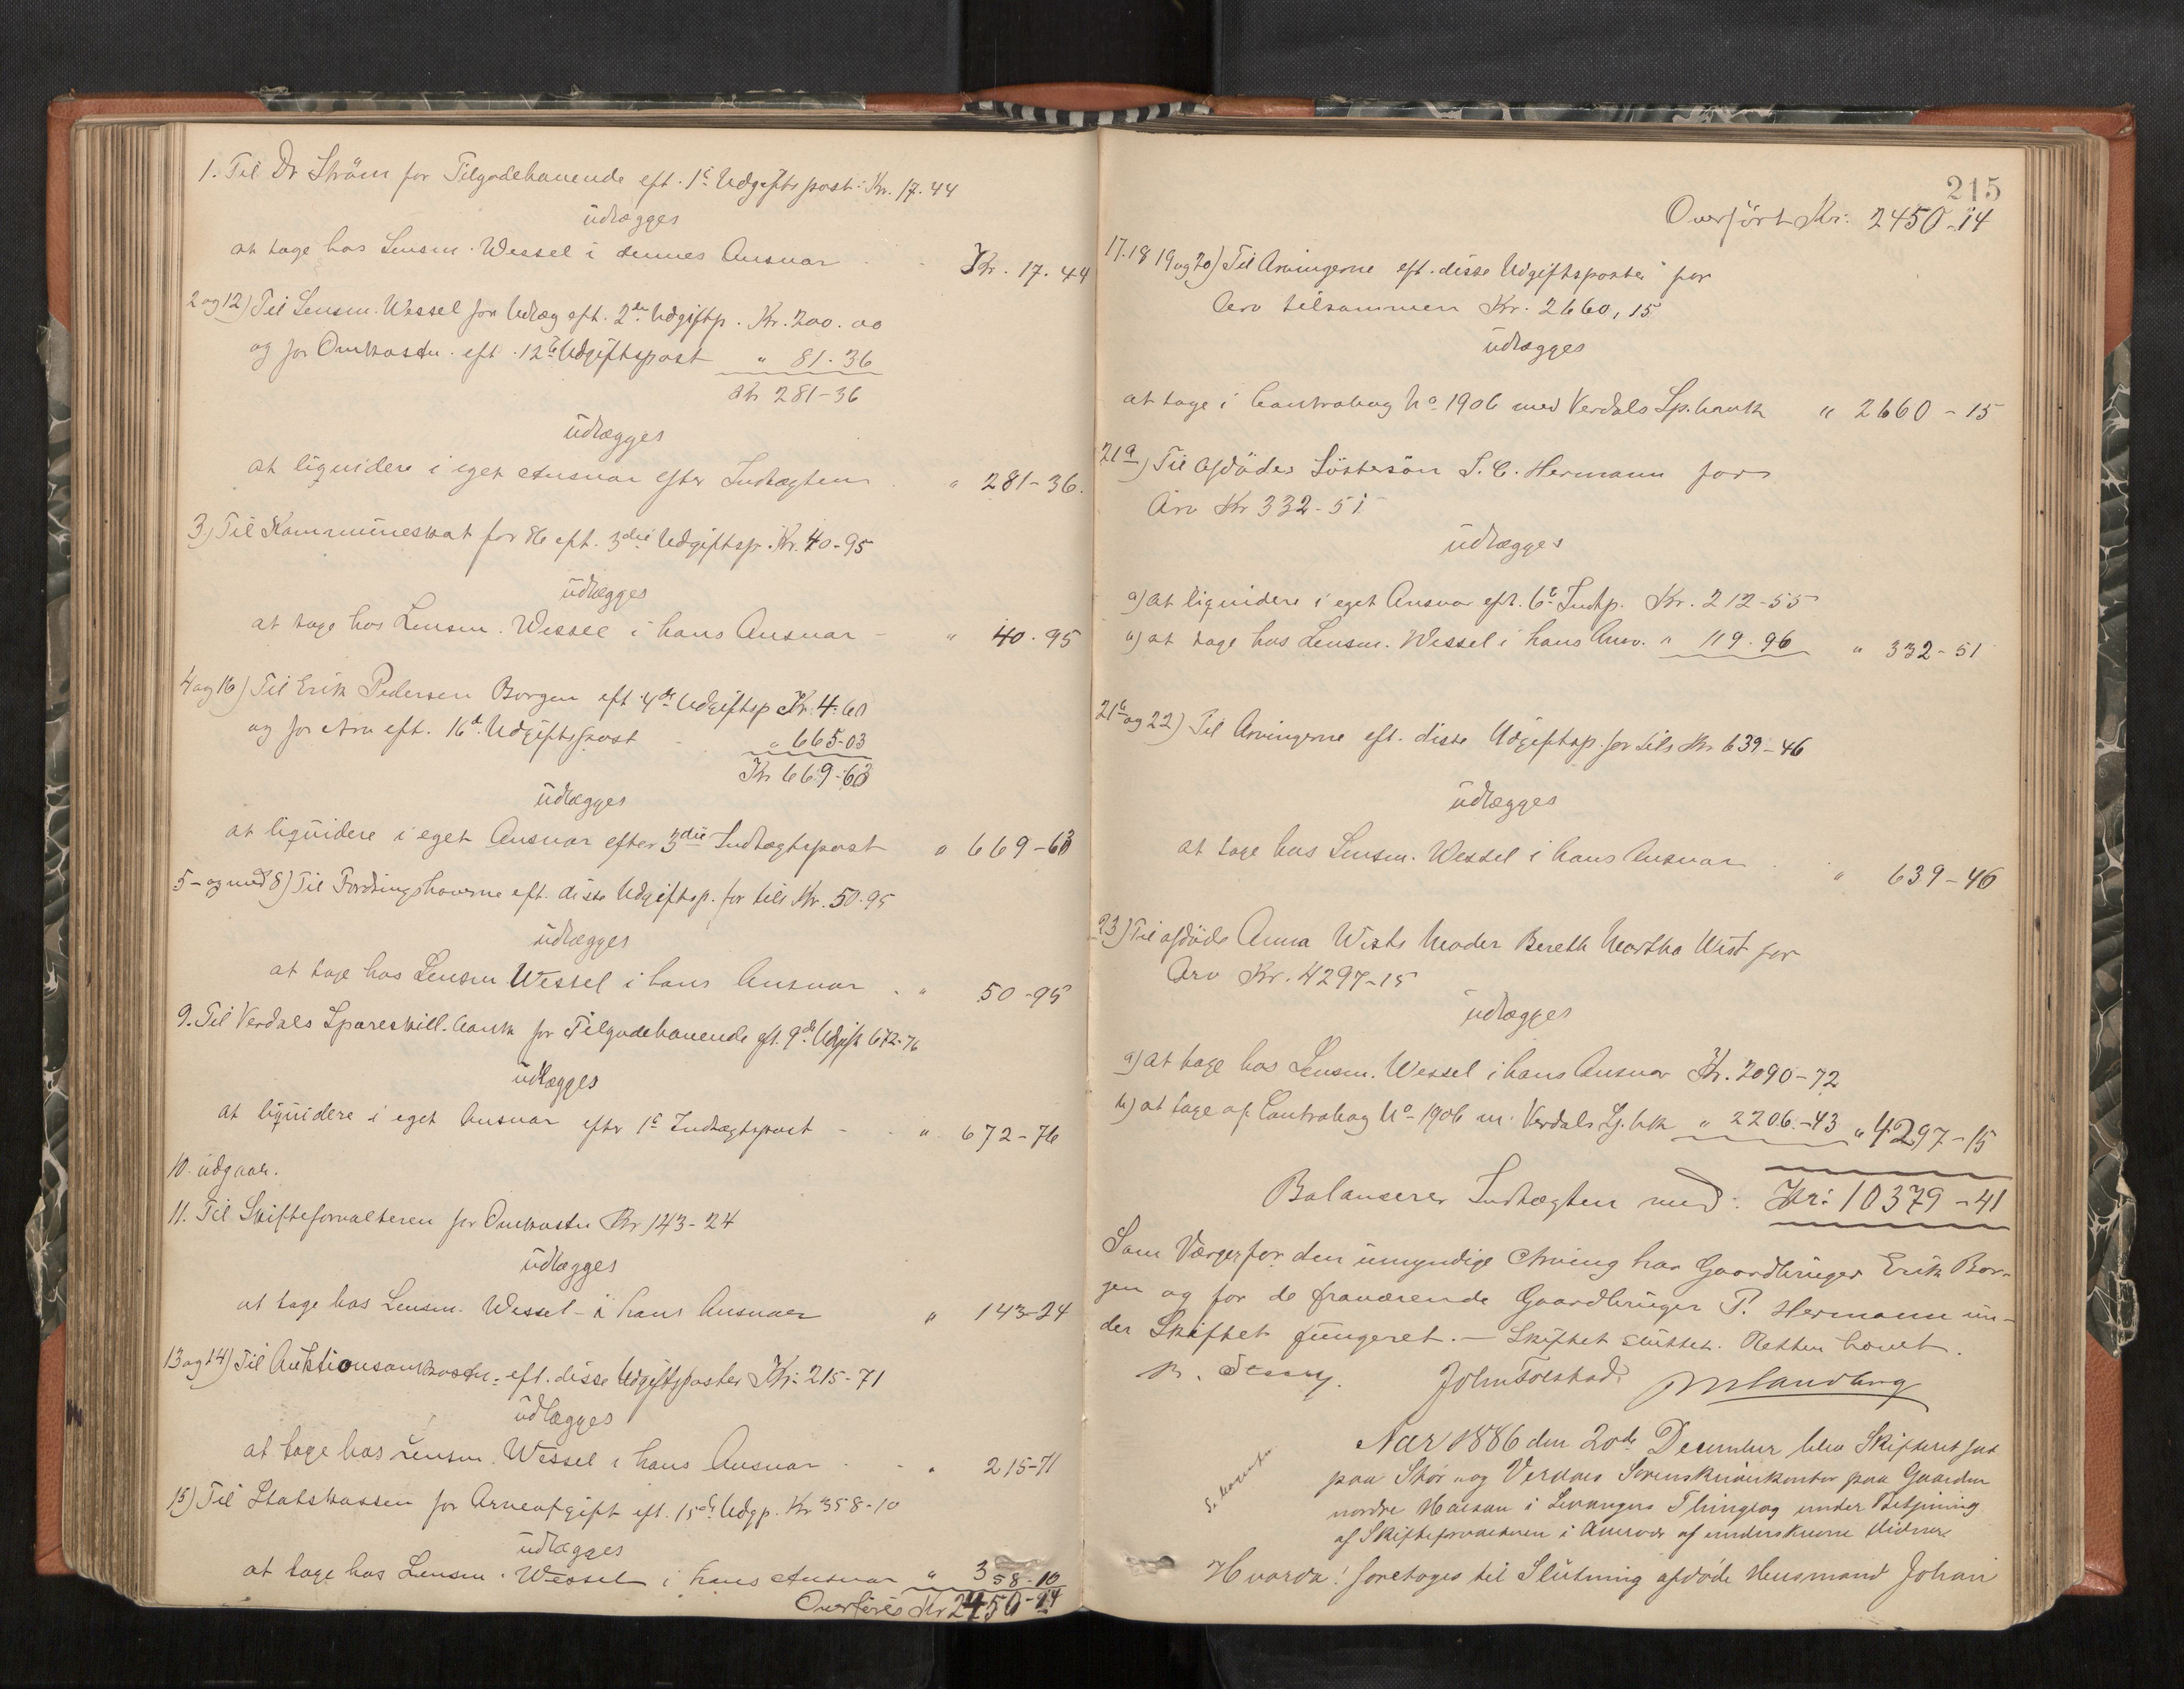 1. Til Dr Ström for Tilgodehavende eft. 1ste Udgiftspost: Kr. 17.44
udlægges
at tage hos Lensm. Wessel i dennes Ansvar Kr. 17.44
2 og 12) Til Lensm. Wessel for Udlæg eft. 2den Udgiftp. Kr. 200.00
og for Omkostn. eft. 12te Udgiftspost " 81-36
Kr 281-36
udlægges
at liquidere i eget Ansvar efter Indtægten " 281-36.
3) Til Kommuneskat for 86 eft. 3die Udgiftsp. Kr. 40-95
udlægges
at tage hos Lensm. Wessel i hans Ansvar - " 40.95
4 og 16) Til Erik Pedersen Borgen eft. 4de Udgiftsp Kr. 4.60
og for Arv eft. 16de Udgiftspost " 665-03
Kr 669-63
udlægges
at liquidere i eget Ansvar efter 3die Indtægtspost " 669-63
5- og med 8) Til Fordringshaverne eft. disse Udgiftsp. for tils Kr. 50-95
udlægges
at tage hos Lensm Wessel i hans Ansvar " 50-95
9. Til Verdals Spareskill.bank for Tilgodehavende eft. 9de Udgift 672-76
udlægges
at liquidere i eget Ansvar efter 1ste Indtægtspost - " 672-76
10. udgaar.
11. Til Skifteforvalteren for Omkostn Kr 143-24
udlægges
at tage hos Lensm. Wessel i hans Ansvar " 143-24
13 og 14) Til Auktionsomkostn. eft. disse Udgiftsposter Kr. 215-71
udlægges
at tage hos Lensm. Wessel i hans Ansvar " 215-71
15) Til Statskassen for Arveafgift eft. 15de Udgp. Kr 358-10
udlægges
at tage hos Lensm. Wessel i hans Ansvar " 358-10
Overføres Kr 2450-14
215
Overført Kr: 2450-14
17. 18 19 og 20) Til Arvingerne eft. disse Udgiftsposter for
Arv tilsammen Kr. 2660,15
udlægges
at tage i Contrabog No 1906 med Verdals Sp.bank " 2660-15
21a) Til Afdödes Söstersön S. C. Hermann for
Arv Kr 332-51
udlægges
a) at liquidere i eget Ansvar eft. 6te Indtp. Kr. 212-55
b) at tage hos Lensm. Wessel i hans Ansv. " 119.96 " 332-51
21b og 22) Til Arvingerne eft. disse Udgiftsp. for tils Kr 639-46
udlægges
at tage hos Lensm. Wessel i hans Ansvar " 639-46
23) Til afdöde Anna Wists Moder Bereth Martha Wist for
Arv Kr. 4297-15
udlægges
a) at tage hos Lensm. Wessel i hans Ansvar Kr. 2090-72
b) at tage af Contrabog No 1906 m. Verdals Sp.bk " 2206-43 " 4297-15
Balancerer Indtægten med: Kr: 10379-41
Som Værger for den umyndige Arving har Gaardbruger Erik Bor-
gen og for de fraværende Gaardbruger P. Hermann un-
der Skiftet fungeret. - Skiftet sluttet. Retten hævet.
John Tolstad. Landberg
Aar 1886 den 20de December blev Skifteret sat
paa Stör- og Verdals Sorenskriverkontor paa Gaarden
nordre Halsan i Levangers Thinglag under Betjening
af Skifteforvalteren i Overvær af underskrevne Vidner
Hvorda! foretoges til Slutning afdöde Husmand Johan